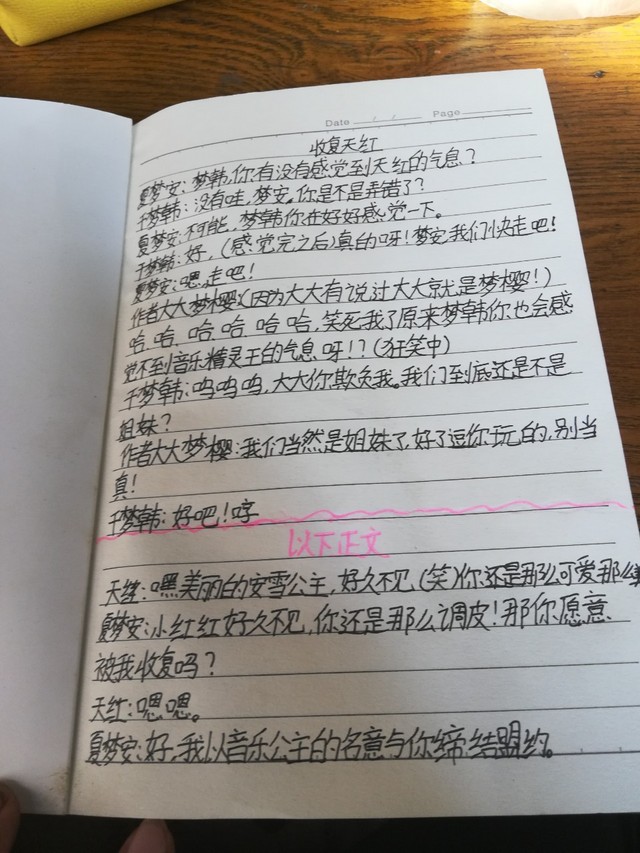 Date / / Page
收复天红
夏梦安:梦韩,你有没有感觉到天红的气息?
千梦韩:没有哇,梦安。你是不是弄错了?
夏梦安:不可能,梦韩你在好好感觉一下。
千梦韩:好,(感觉完之后)真的呀!梦安,我们快走吧!
夏梦安:嗯,走吧!
作者大大梦樱:(因为大大有说过大大就是梦樱!)
哈、哈、哈、哈、哈、哈,笑死我了原来梦韩你也会感
觉不到音乐精灵王的气息呀!?(狂笑中)
千梦韩:呜呜呜,大大你欺负我。我们到底还是不是
姐妹?
作者大大梦樱:我们当然是姐妹了,好了逗你玩的,别当
真!
千梦韩:好吧!哼
以下正文
天红:嘿美丽的安雪公主,好久不见,(笑)你还是那么可爱那么美
夏梦安:小红红好久不见,你还是那么调皮!那你愿意
被我收复吗?
天红:嗯嗯。
夏梦安:好,我以音乐公主的名意与你缔结盟约。